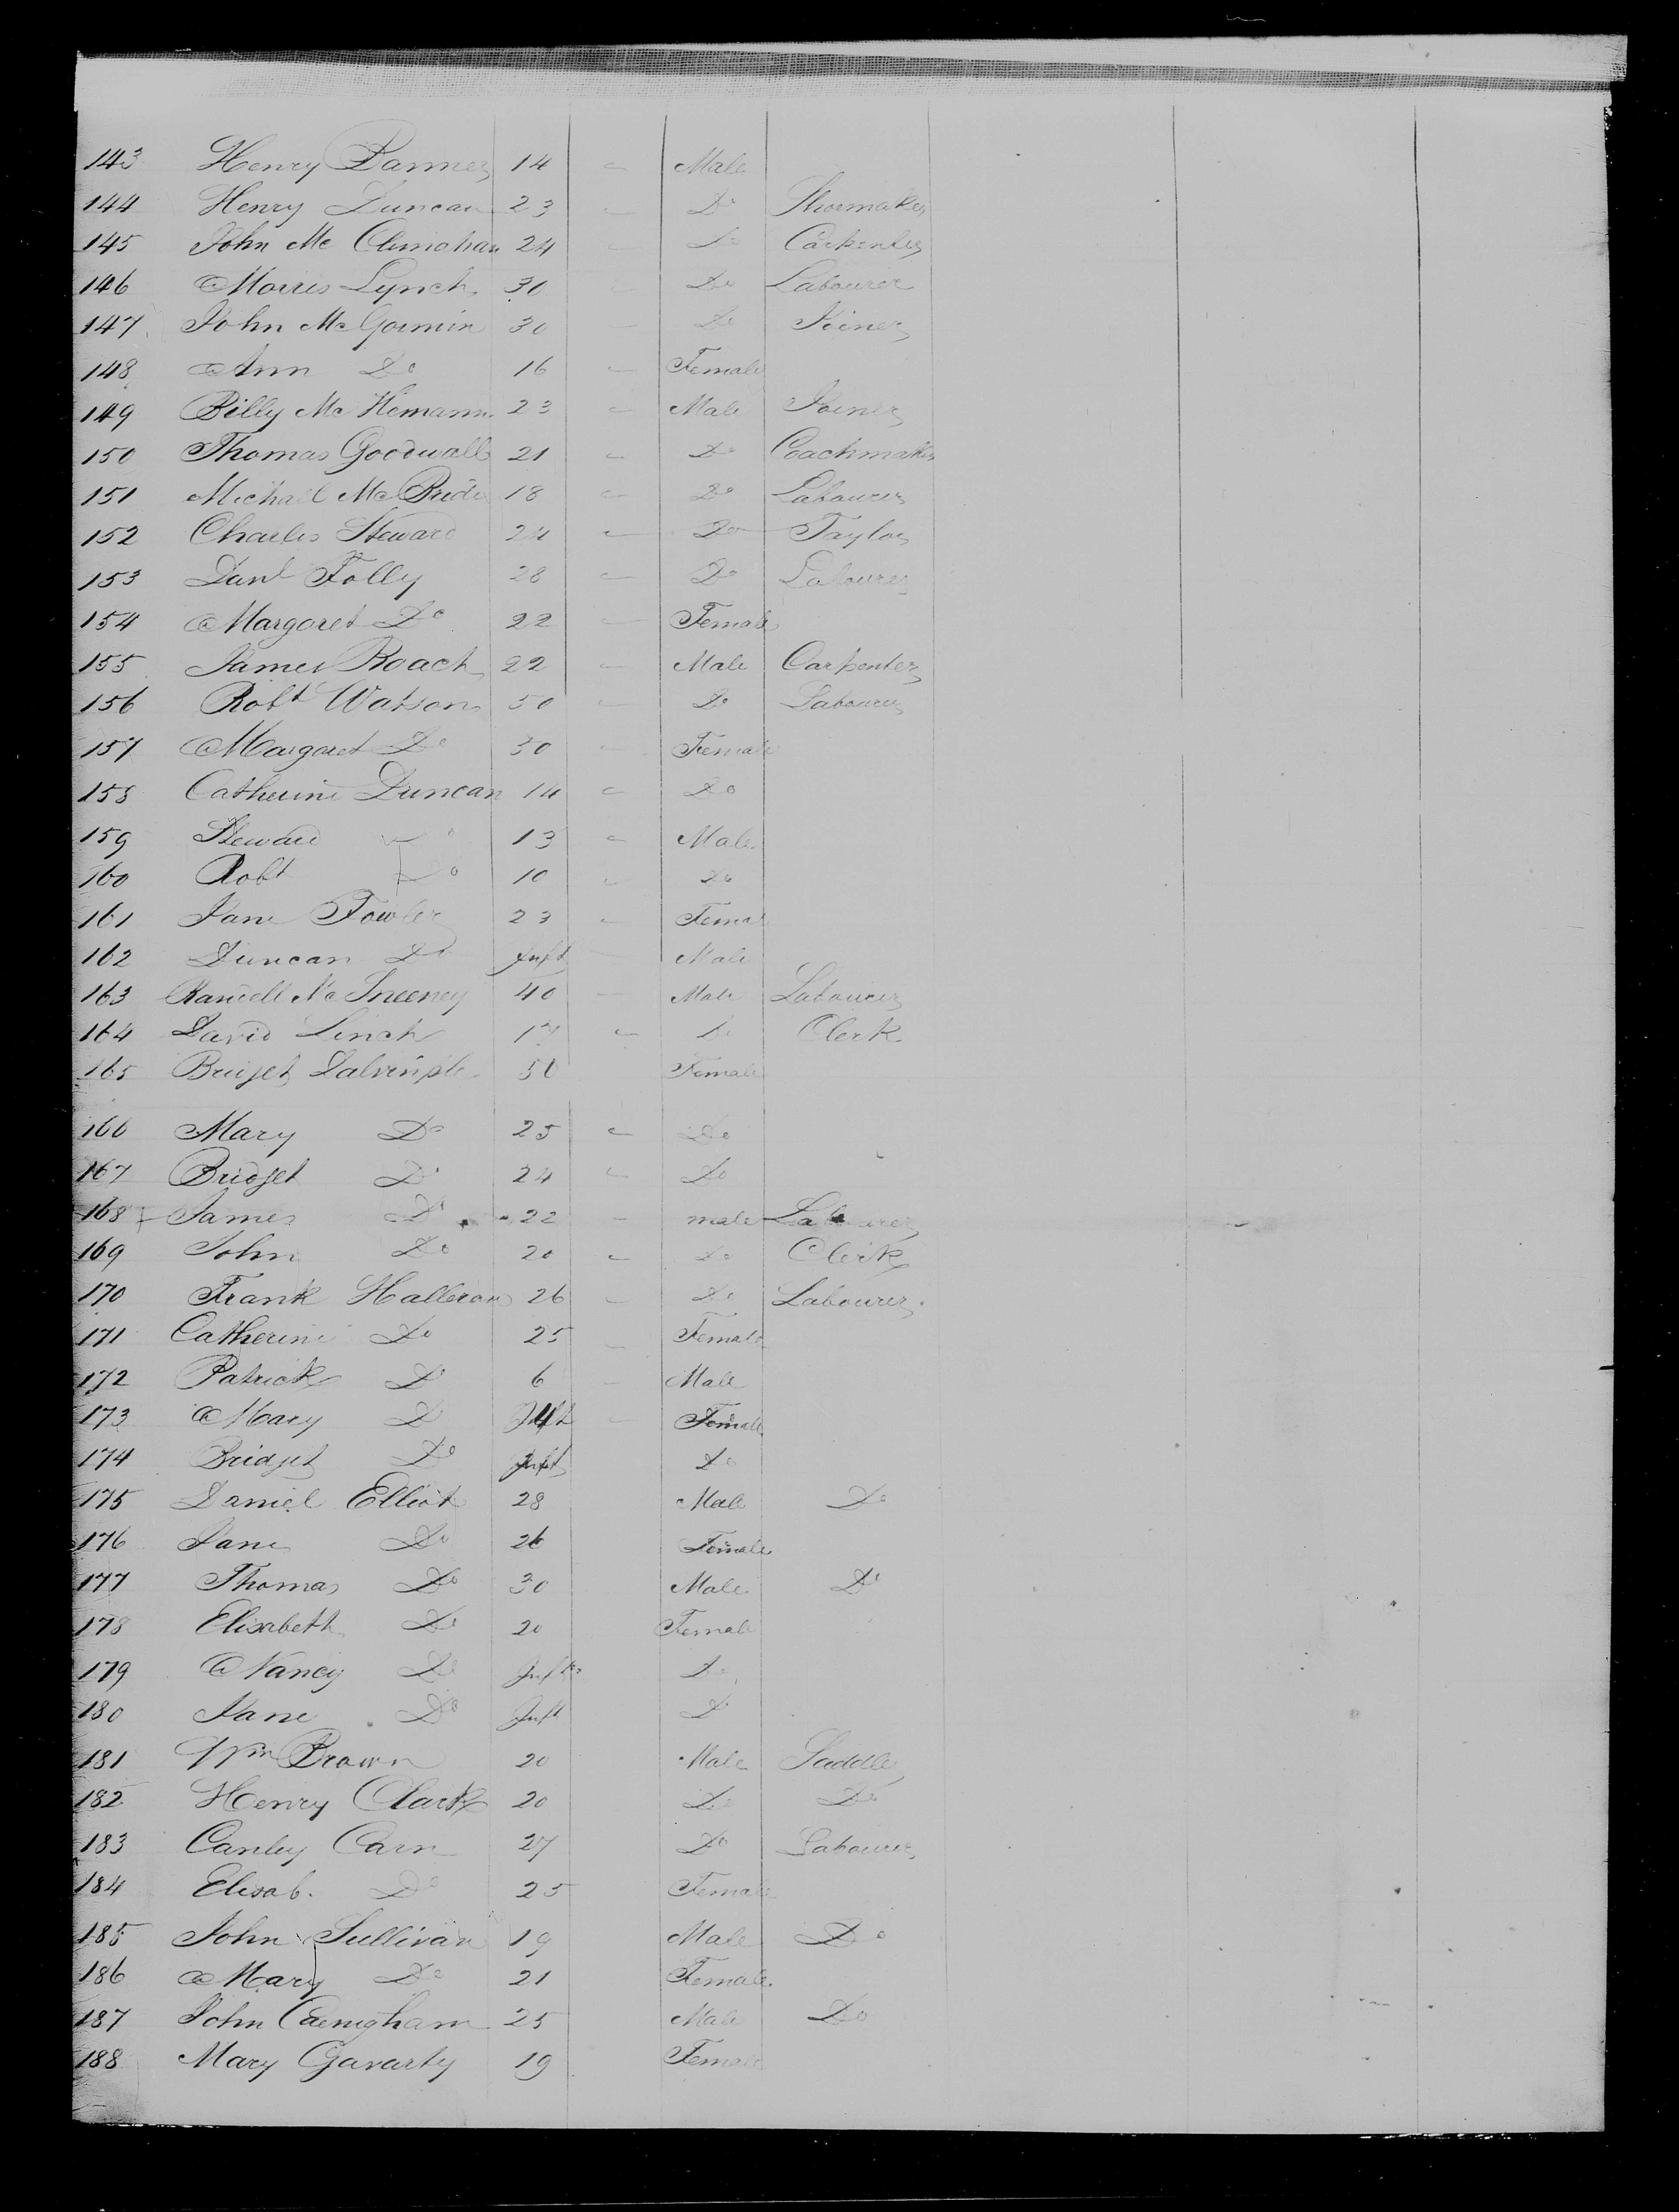 143 Henry 14 Male
144 Henry Duncan 23 Do Shoemaker
145 John Mc 24 Do Carpenter
146 Morris Lynch 30 Do Labourer
147 John McGormin 30 Do Joiner
148 Ann Do 16 Female
149 Billy Mc 23 Male Joiner
150 Thomas Goodwall 21 Do Coachmaker
151 Michael McBride 18 Do Labourer
152 Charles Steward 24 Do Taylor
153 Danl Folly 28 Do Labourer
154 Margaret Do 22 Female
155 James Roach 22 Male Carpenter
156 Robt Watson 50 Do Labourer
157 Margaret Do 30 Female
158 Catherine Duncan 14 Do
159 Steward Do 13 Male
160 Robt Do 10 Do
161 Jane Fowler 23 Female
162 Duncan Do Inft Male
163 Mc Sneeney 40 Male Labourer
164 David Linch 17 Do Clerk
165 Bridget 50 Female
166 Mary Do 25 Do
167 Bridget Do 24 Do
168 James Do 22 male Labourer
169 John Do 20 Do Clerk
170 Frank Halleran 26 Do Labourer
171 Catherine Do 25 Female
172 Patrick Do 6 Male
173 Mary Do 4 Female
174 Bridget Do Inft Do
175 Daniel Elliot 28 Male Do
176 Jane Do 26 Female
177 Thomas Do 30 Male Do
178 Elisabeth Do 20 Female
179 Nancy Do Inft Do
180 Jane Do Inft Do
181 Wm Brown 20 Male Saddler
182 Henry Clark 20 Do Do
183 Canley Carn 27 Do Labourer
184 Elisab. Do 25 Female
185 John Sullivan 19 Male Do
186 Mary Do 21 Female
187 John 25 Male Do
188 Mary Gavarty 19 Female